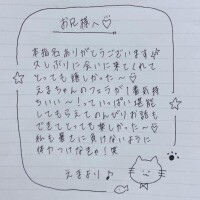 お兄様へ♡
本指名ありがとうございます
久しぶりに会いに来てくれて
とっても嬉しかった〜♡
えまちゃんのフェラが1番気持
ちいい〜!っていっぱい堪能
してもらえてのんびりお話も
できてとっても楽しかった〜♡
私も暑さに負けないように
体力つけなきゃ!笑
えまより♪